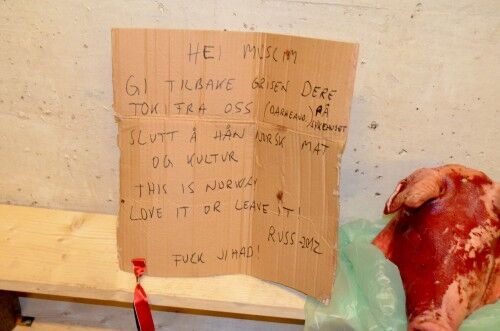 HEI MUSLIM
GI TILBAKE GRISEN DERE
TOK FRA OSS
PÅ
SLUTT Å HÅN NORSK MAT
OG KULTUR
THIS IS NORWAY
LOVE IT OR LEAVE IT!
RUSS-2012
FUCK JIHAD!